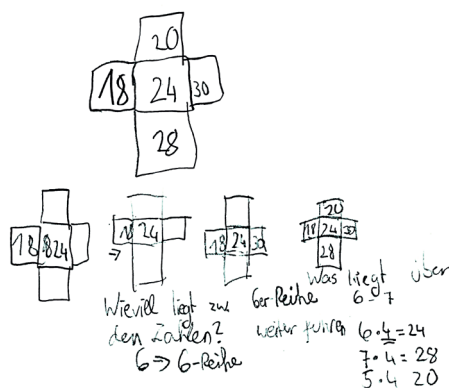 20
18 24 30
28
18 8 24
18 24
18 24 30
20
18 24 30
28
Wieviel liegt zw
den Zahlen?
6 => 6-Reihe
6er-Reihe
weiter führen
Was liegt über
6-7
6·4=24
7·4=28
5·4 20